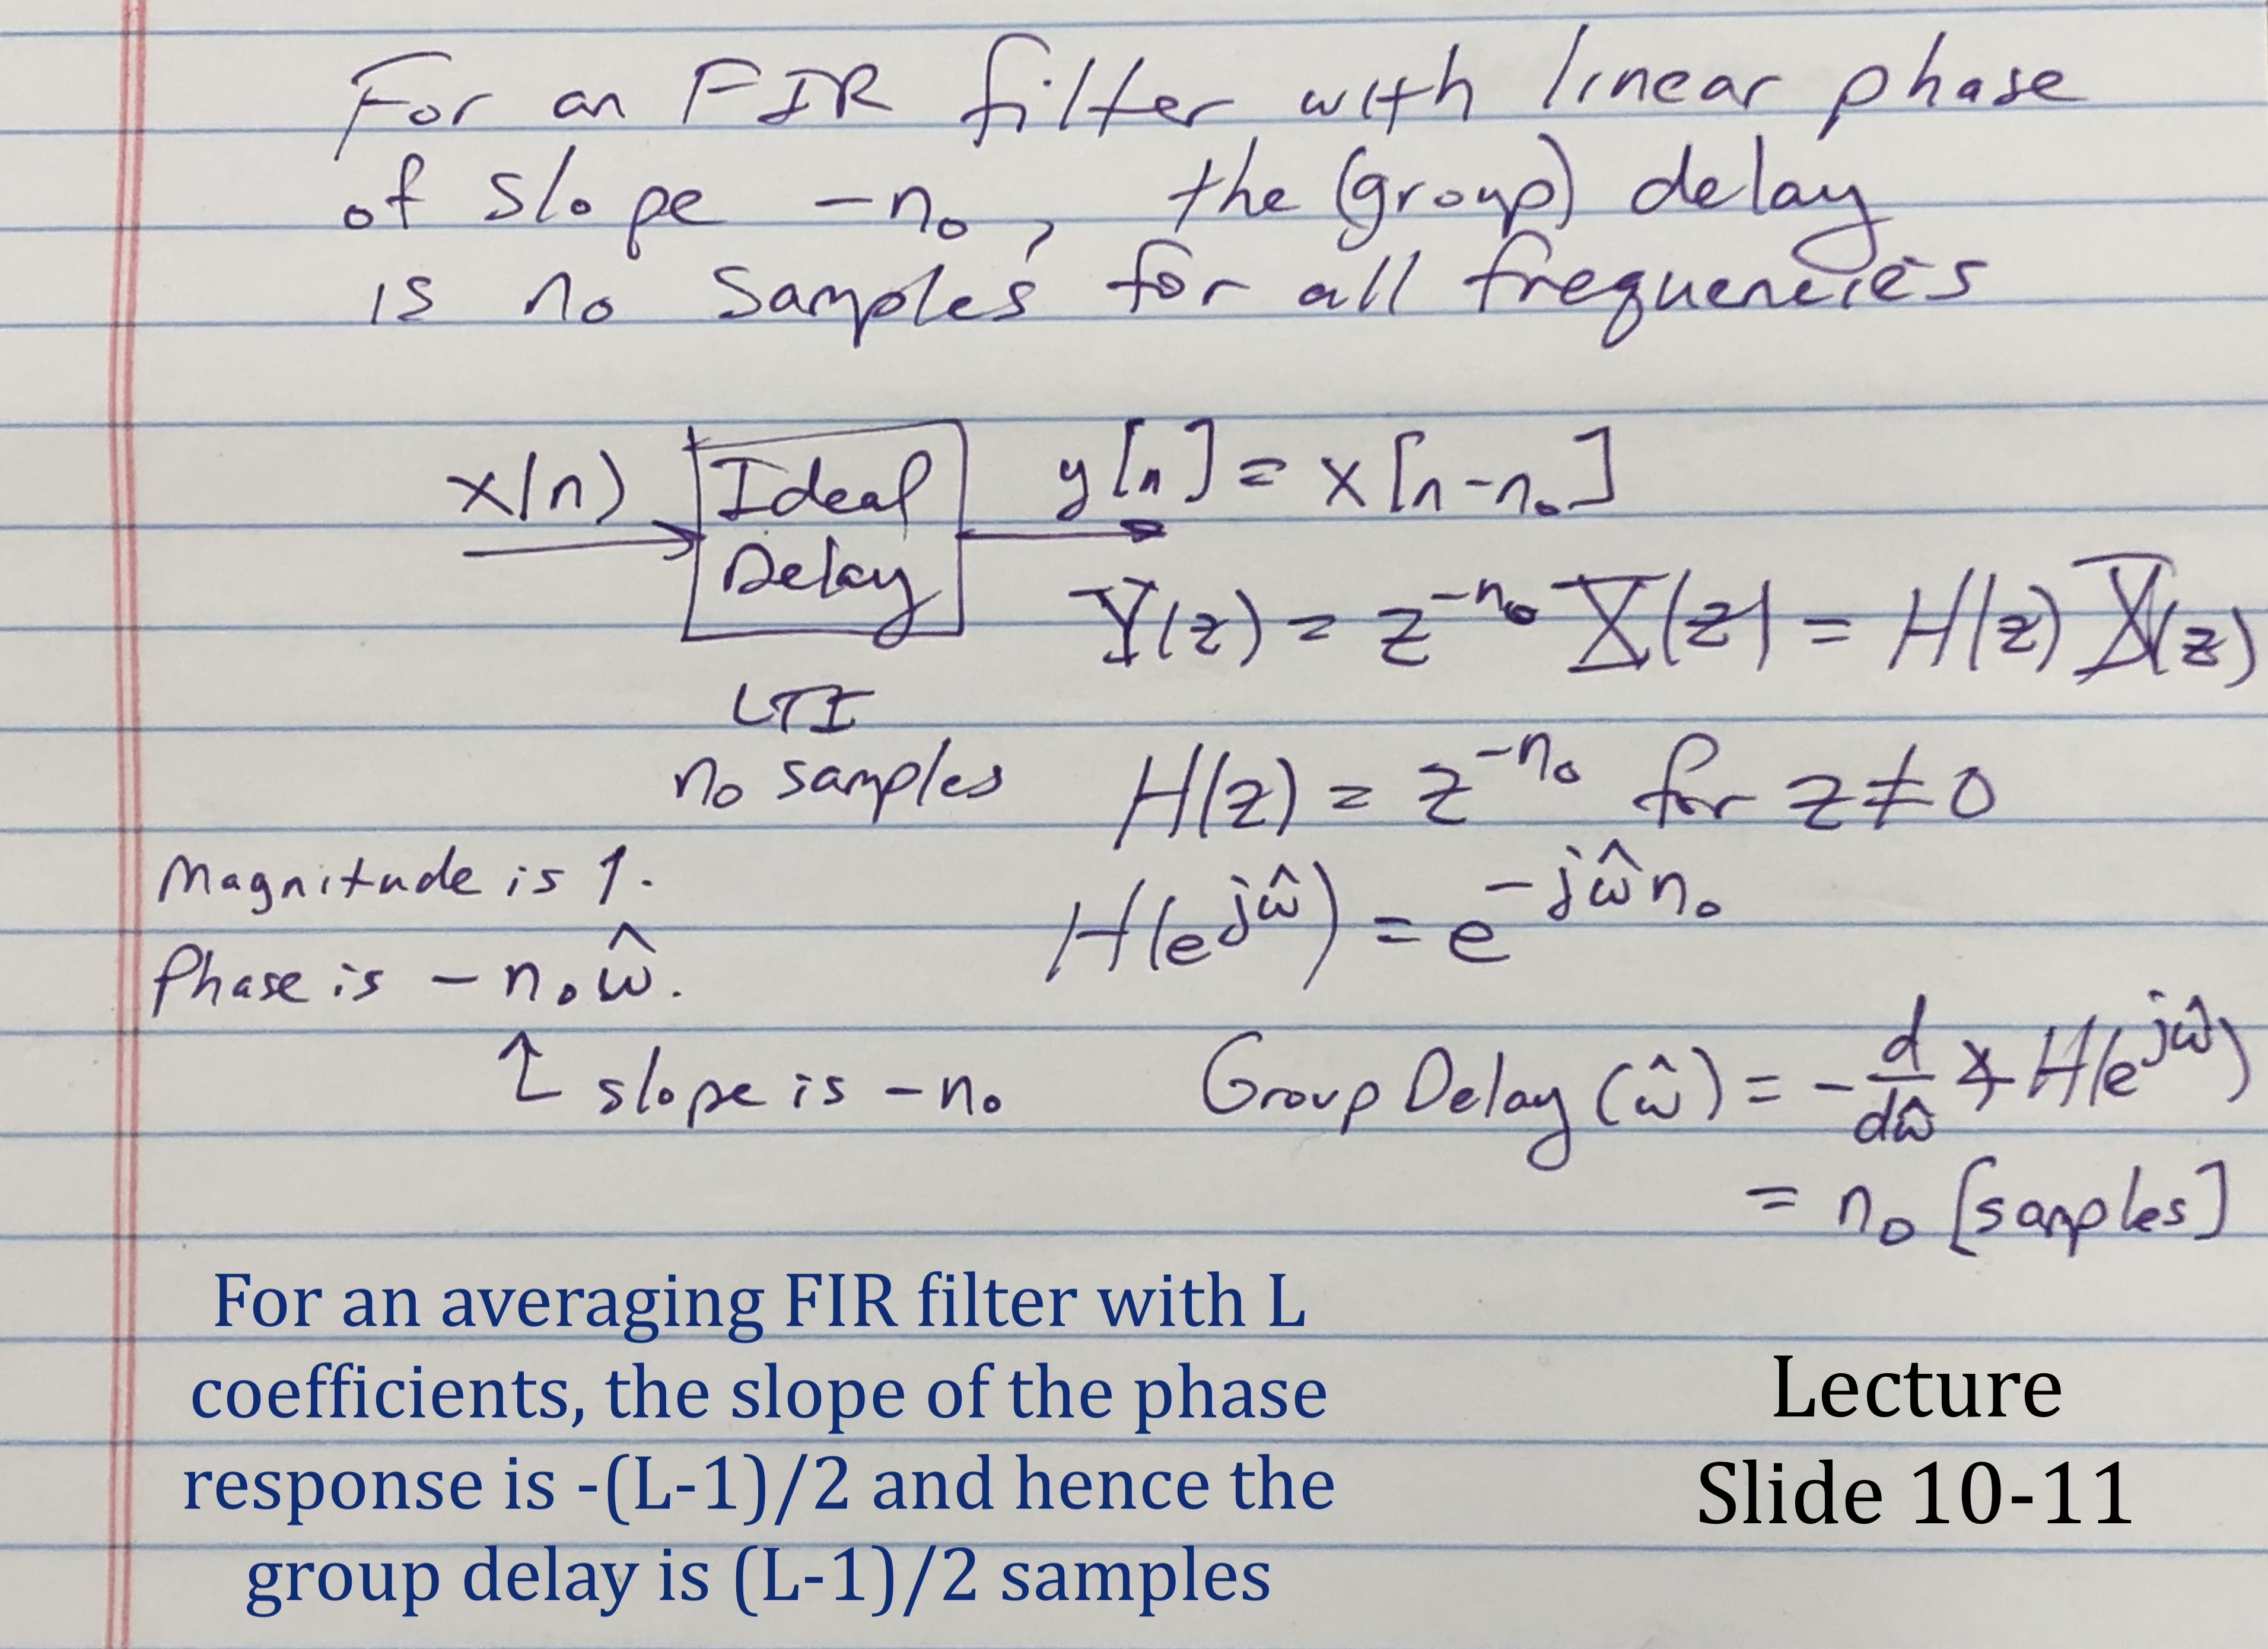 For an FIR filter with linear phase
of slope -n₀, the (group) delay
is n₀ samples for all frequencies
x(n)
Ideal
Delay
y[n] = x[n-n₀]
Y(z) = z^{-n₀} X(z) = H(z) X(z)
LTI
n₀ samples
H(z) = z^{-n₀} for z ≠ 0
Magnitude is 1.
H(e^{jω̂}) = e^{-jω̂n₀}
Phase is -n₀ω̂.
↑ slope is -n₀
Group Delay (ω̂) = - d/dω̂ ∡ H(e^{jω̂})
= n₀ [samples]
For an averaging FIR filter with L
coefficients, the slope of the phase
response is -(L-1)/2 and hence the
group delay is (L-1)/2 samples
Lecture
Slide 10-11